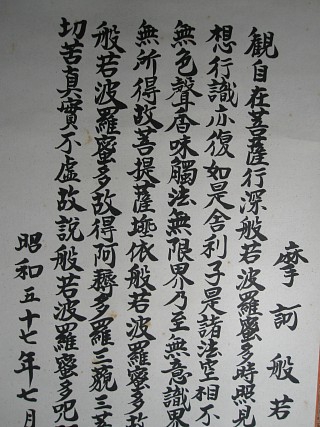 摩訶般若
観自在菩薩行深般若波羅蜜多時照見
想行識亦復如是舎利子是諸法空相不
無色聲香味觸法無限界乃至無意識界
無所得故菩提薩埵依般若波羅蜜多故
般若波羅蜜多故得阿耨多羅三藐三菩
切苦真實不虚故説般若波羅蜜多呪
昭和五十七年七月